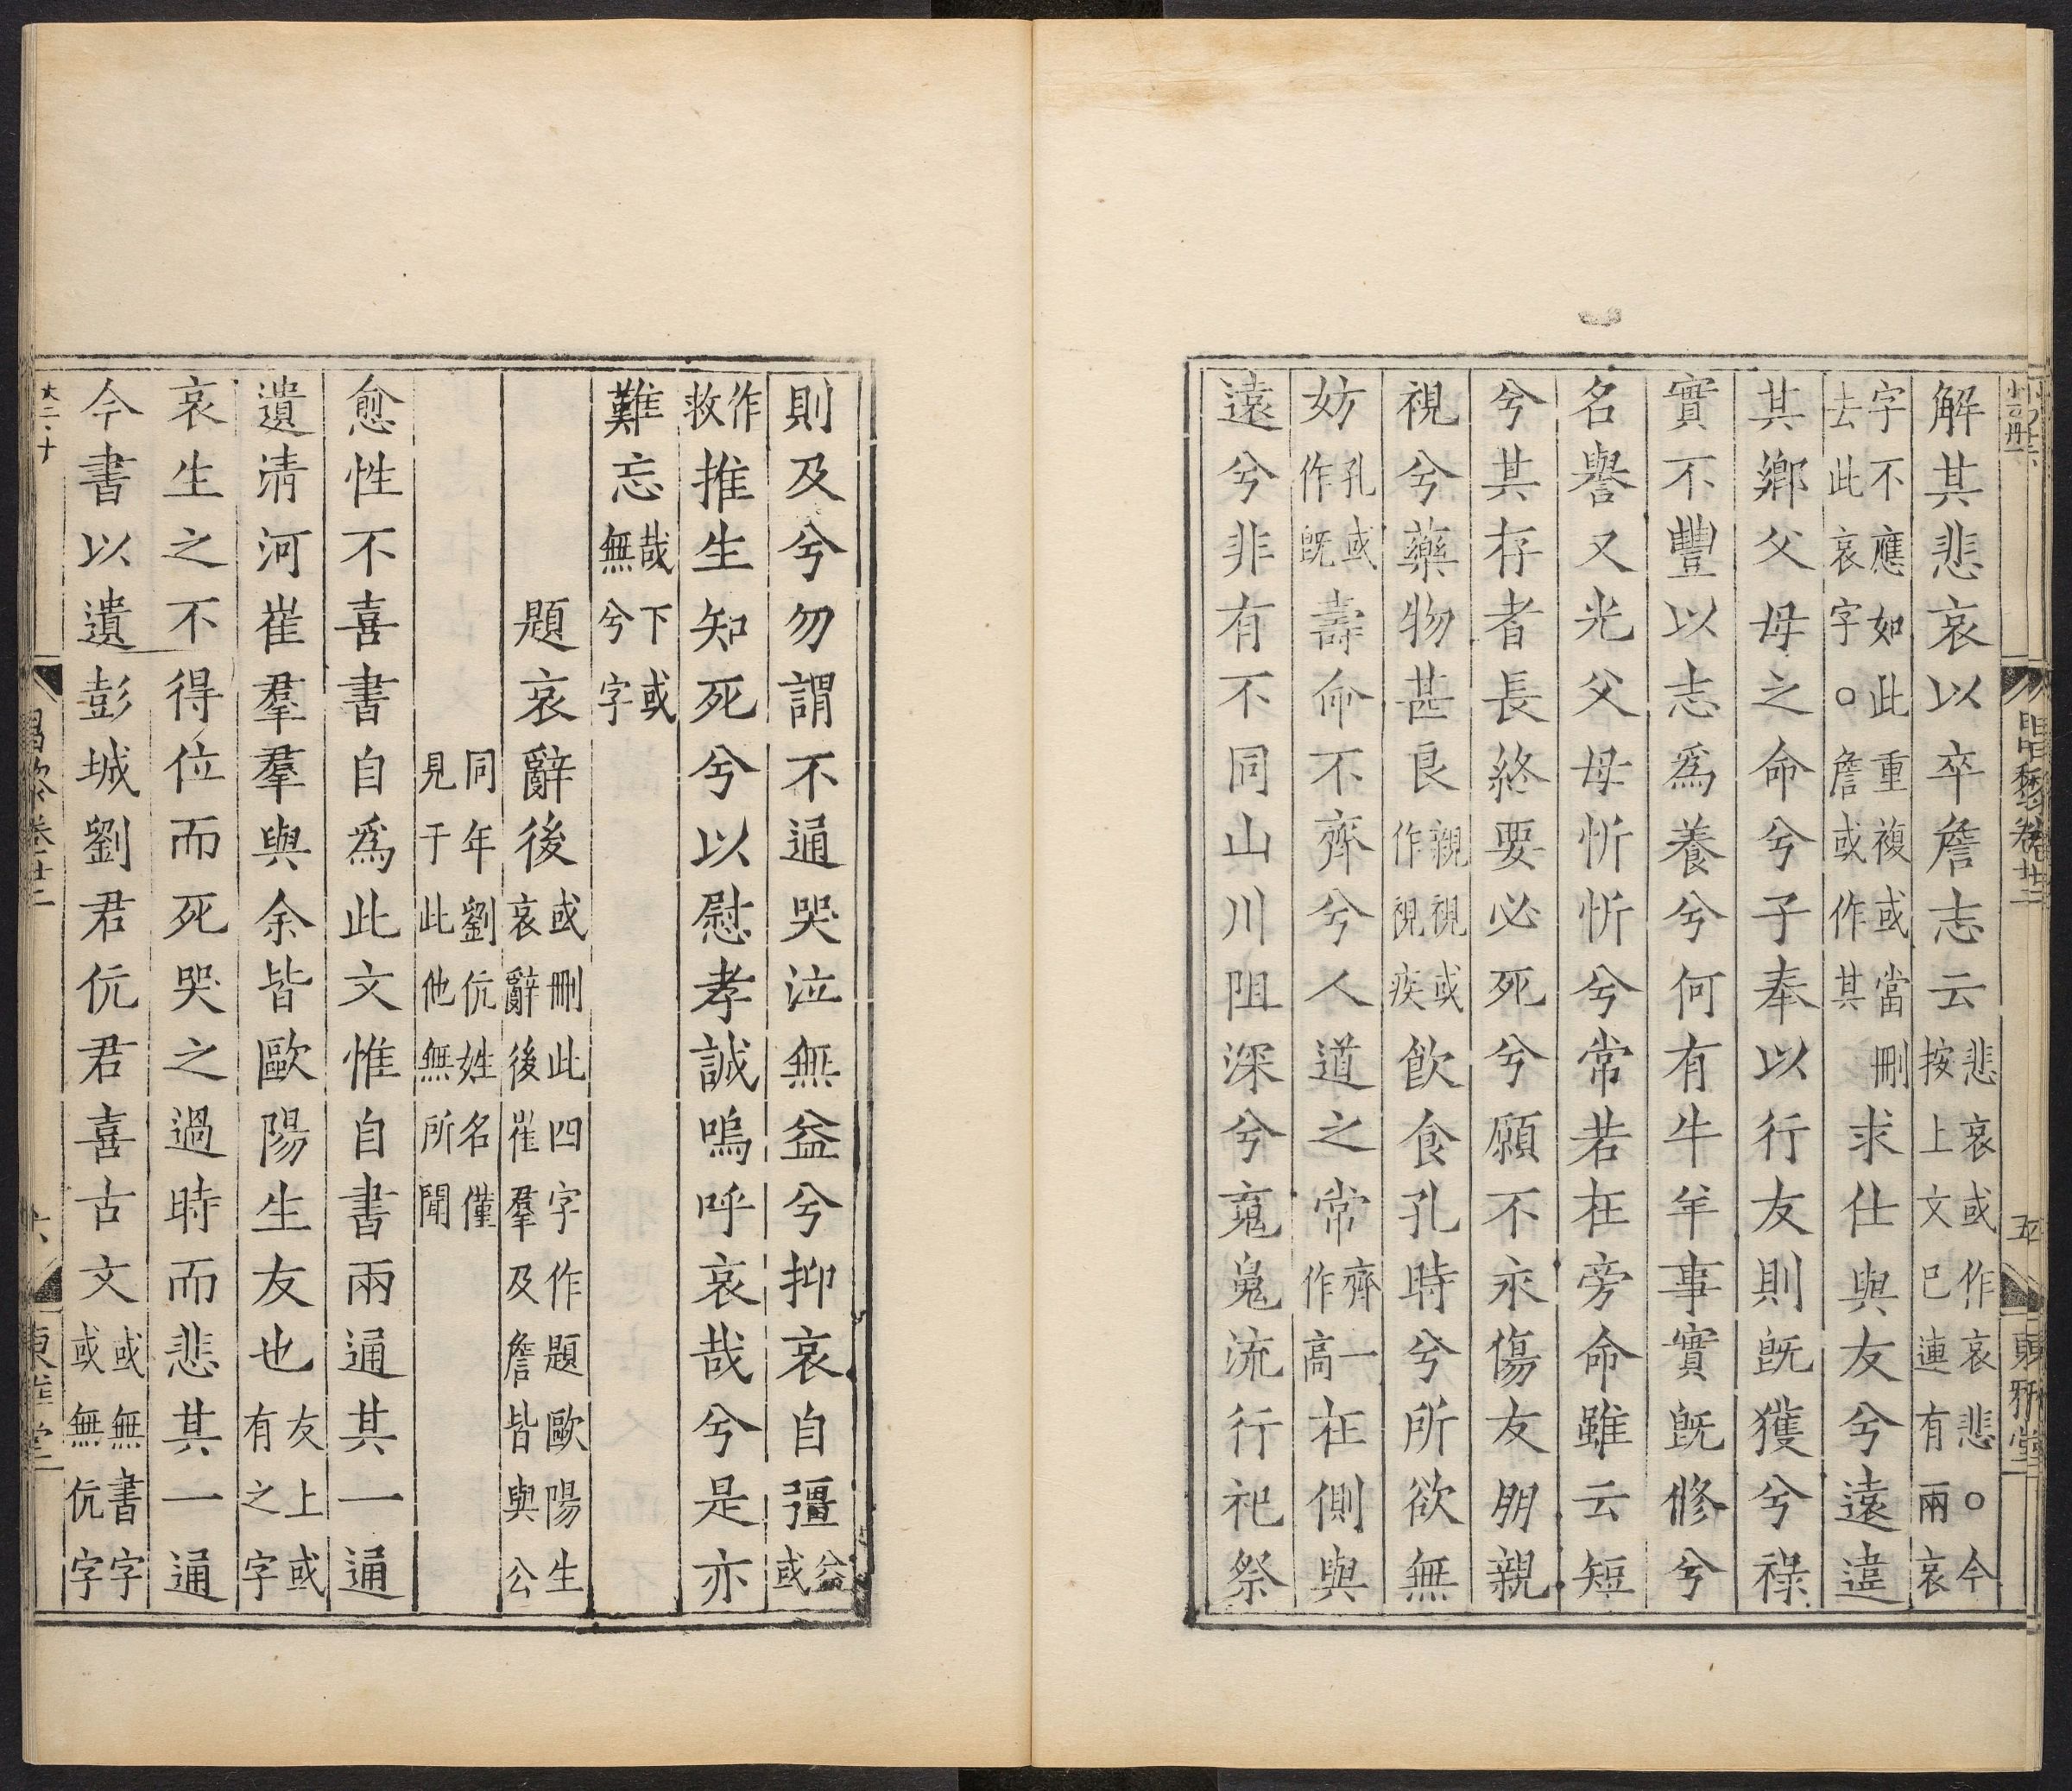 解其悲哀以卒詹志云悲哀或作哀悲○今按上文已連有兩哀
字不應如此重複或當刪去此哀字○詹或作其求仕與友兮遠違
其鄉父母之命兮子奉以行友則旣獲兮祿
實不豐以志爲養兮何有牛羊事實旣修兮
名譽又光父母忻忻兮常若在旁命雖云短
兮其存者長終要必死兮願不永傷友朋親
視兮藥物甚良親視或作視疾飲食孔時兮所欲無
妨孔或作旣壽命不齊兮人道之常齊一作高在側與
遠兮非有不同山川阻深兮䰟鬼流行祀祭
昌黎卷廿二
五
東雅堂
則及兮勿謂不通哭泣無益兮抑哀自彊益或
作救推生知死兮以慰孝誠嗚呼哀哉兮是亦
難忘哉下或無兮字
題哀辭後或刪此四字作題歐陽生哀辭後崔羣及詹皆與公
同年劉伉姓名僅見于此他無所聞
愈性不喜書自爲此文惟自書兩通其一通
遺淸河崔羣羣與余皆歐陽生友也友上或有之字
哀生之不得位而死哭之過時而悲其一通
今書以遺彭城劉君伉君喜古文或無書字或無伉字
昌黎卷廿二
六
東雅堂